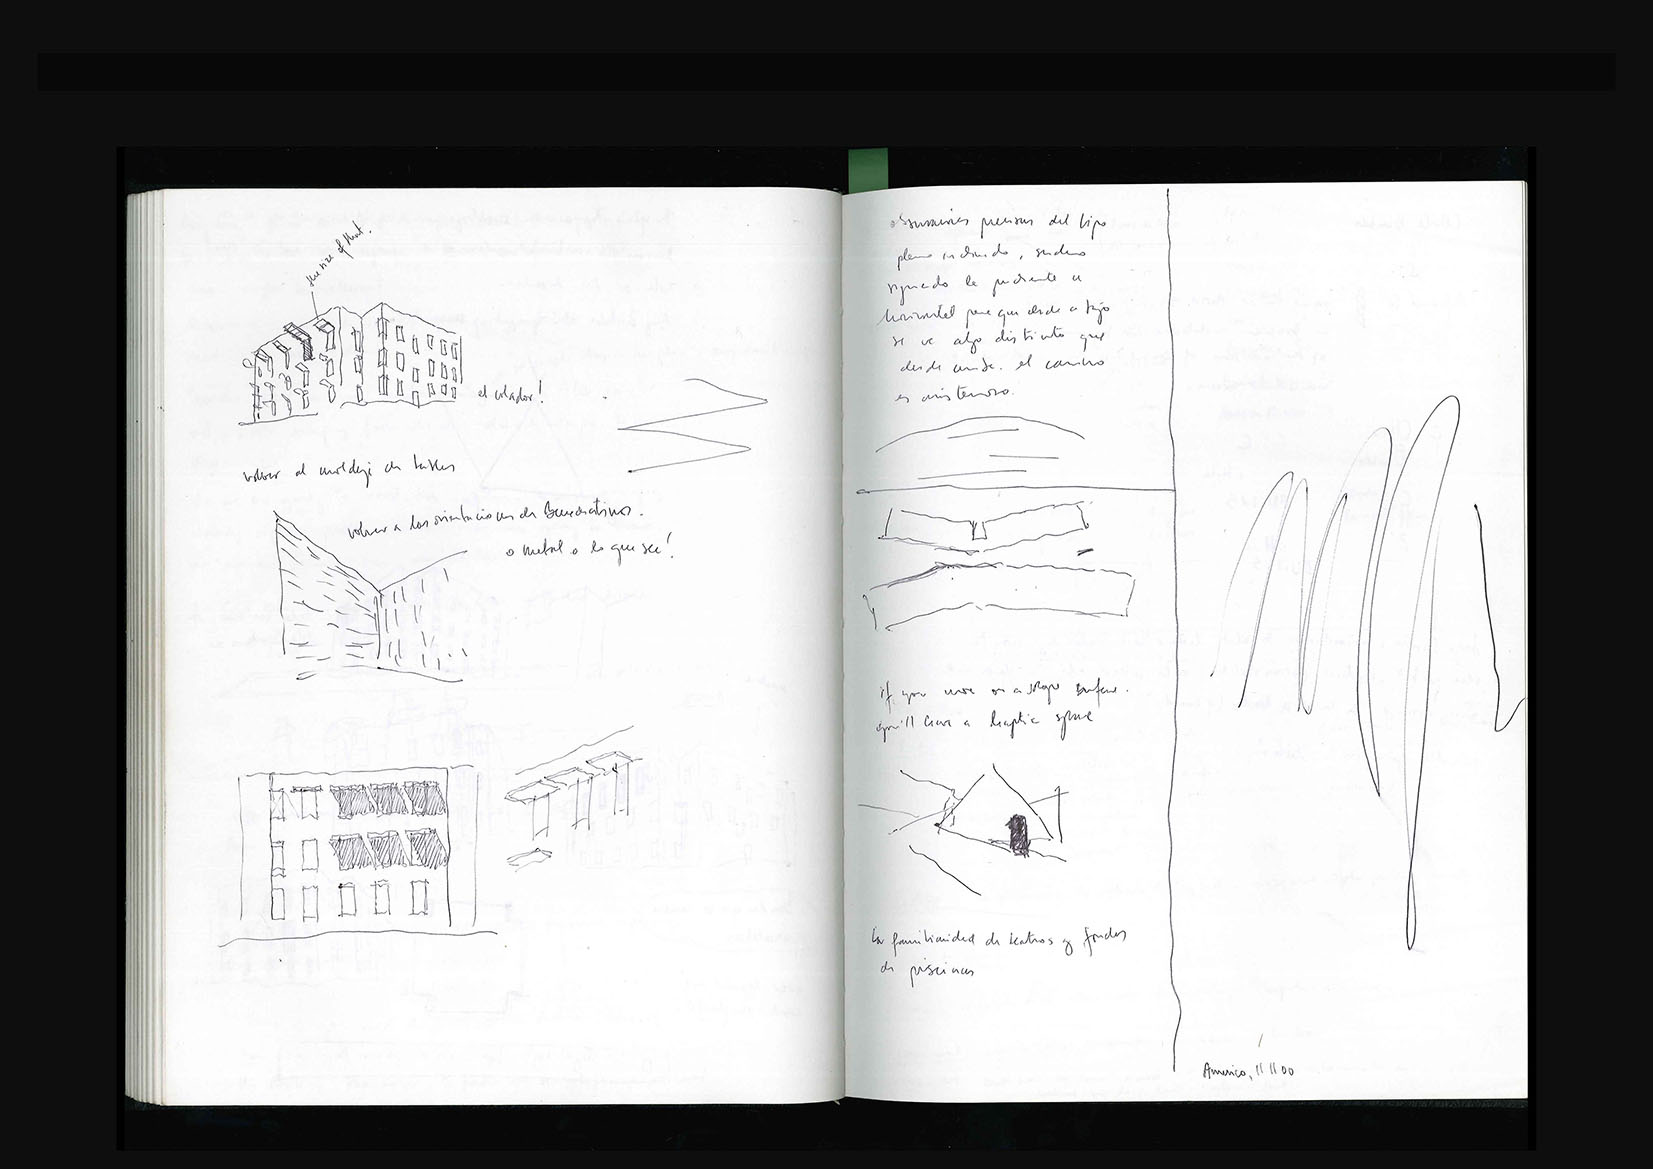 the size of that.
el volador!
volver al
volver a las orientaciones de
o metal o lo que sea!
precisas del tipo
plano inclinado,
la pendiente u
horizontal para que desde abajo
se ve algo distinto que
desde arriba. el camino
es misterioso.
if you move on a slope surface.
you'll have a haptic space
La familiaridad de teatros y fondos
de piscinas
Americo, 11 11 00